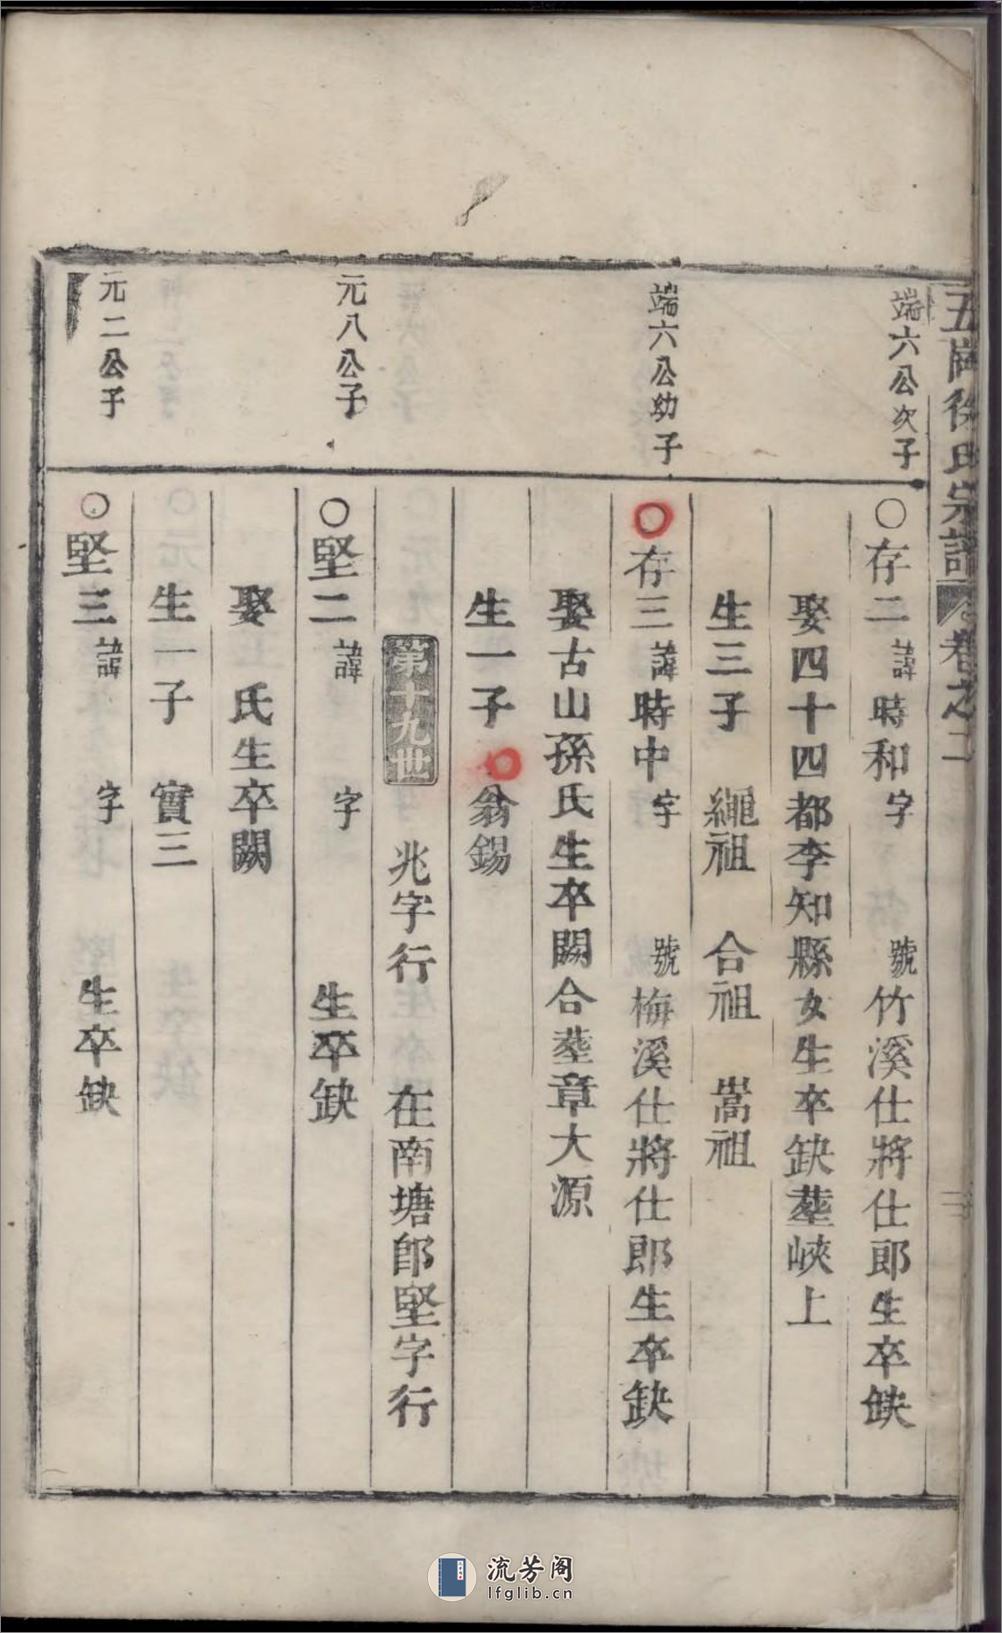 五崗徐氏宗譜 卷之二
端六公次子
○存二諱時和字 號竹溪仕將仕郎生卒缺
娶四十四都李知縣女生卒缺塟峽上
生三子 繩祖 合祖 嵩祖
端六公幼子
○存三諱時中字 號梅溪仕將仕郎生卒缺
娶古山孫氏生卒闕合塟章大源
生一子 ○翁錫
第十九世 兆字行 在南塘郎堅字行
元八公子
○堅二諱 字 生卒缺
娶 氏生卒闕
生一子 實三
元二公子
○堅三諱 字 生卒缺
流芳阁
lfglib.cn